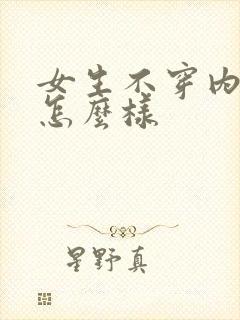 女生不穿内
怎麽樣
星野真